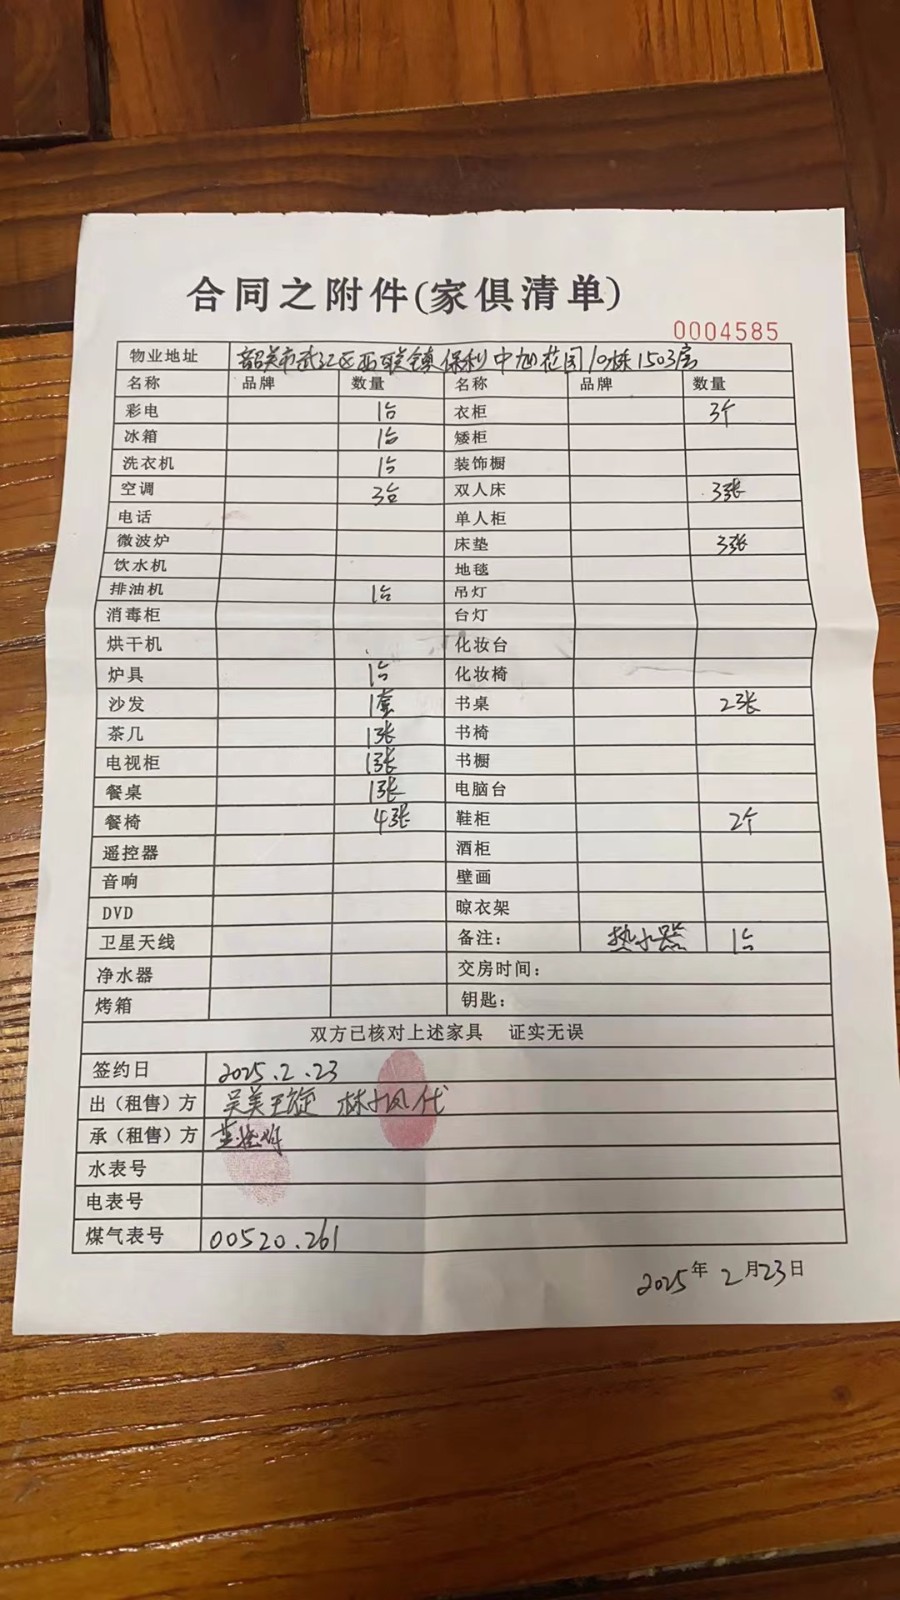 合同之附件(家俱清单)
0004585
物业地址 韶关市武江区西联镇保利中旭花园10栋1503房
名称 品牌 数量 名称 品牌 数量
彩电 1台 衣柜 3个
冰箱 1台 矮柜
洗衣机 1台 装饰橱
空调 3台 双人床 3张
电话 单人柜
微波炉 床垫 3张
饮水机 地毯
排油机 1台 吊灯
消毒柜 台灯
烘干机 化妆台
炉具 1台 化妆椅
沙发 1套 书桌 2张
茶几 1张 书椅
电视柜 1张 书橱
餐桌 1张 电脑台
餐椅 4张 鞋柜 2个
遥控器 酒柜
音响 壁画
DVD 晾衣架
卫星天线 备注: 热水器 1台
净水器 交房时间:
烤箱 钥匙:
双方已核对上述家具 证实无误
签约日 2025.2.23
出(租售)方 吴美璇 林小凤代
承(租售)方
水表号
电表号
煤气表号 00520.261
2025年2月23日